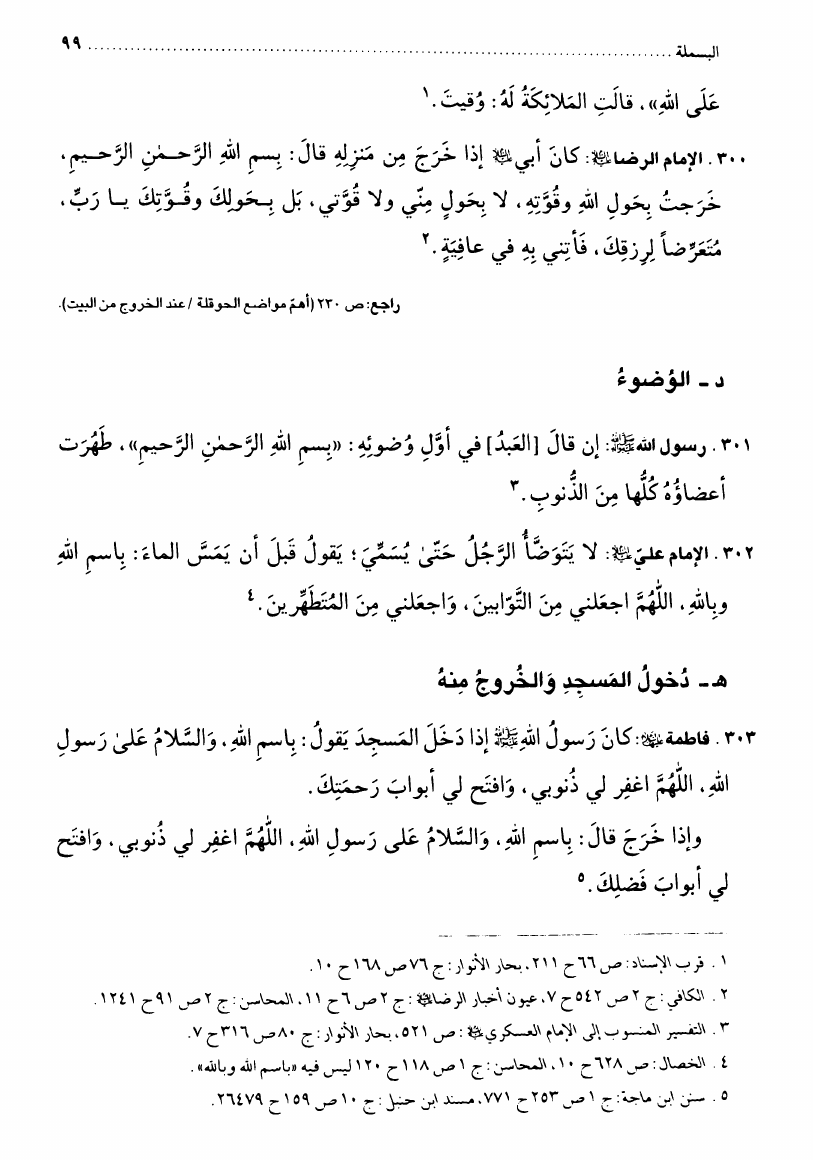 البسملة ........................................................................................................ ٩٩
عَلَى اللهِ»، قالَتِ المَلائِكَةُ لَهُ: وُقيتَ.١
٣٠٠. الإمام الرضا ﷷ: كانَ أبي ﷷ إذا خَرَجَ مِن مَنزِلِهِ قالَ: بِسمِ اللهِ الرَّحـمٰنِ الرَّحـيمِ،
خَرَجتُ بِحَولِ اللهِ وقُوَّتِهِ، لا بِحَولٍ مِنّي ولا قُوَّتي، بَل بِـحَولِكَ وقُـوَّتِكَ يـا رَبِّ،
مُتَعَرِّضاً لِرِزقِكَ، فَأتِني بِهِ في عافِيَةٍ.٢
راجع: ص ٢٣٠ (أهمّ مواضع الحوقلة / عند الخروج من البيت).
د - الوُضوءُ
٣٠١. رسول الله ﷺ: إن قالَ [العَبدُ] في أوَّلِ وُضوئِهِ: «بِسمِ اللهِ الرَّحمٰنِ الرَّحيمِ»، طَهُرَت
أعضاؤُهُ كُلُّها مِنَ الذُّنوبِ.٣
٣٠٢. الإمام عليّ ﷷ: لا يَتَوَضَّأُ الرَّجُلُ حَتّىٰ يُسَمِّيَ؛ يَقولُ قَبلَ أن يَمَسَّ الماءَ: بِاسمِ اللهِ
وبِاللهِ، اللّٰهُمَّ اجعَلني مِنَ التَّوّابينَ، وَاجعَلني مِنَ المُتَطَهِّرينَ.٤
هـ - دُخولُ المَسجِدِ وَالخُروجُ مِنهُ
٣٠٣. فاطمة ﷷ: كانَ رَسولُ اللهِ ﷺ إذا دَخَلَ المَسجِدَ يَقولُ: بِاسمِ اللهِ، وَالسَّلامُ عَلىٰ رَسولِ
اللهِ، اللّٰهُمَّ اغفِر لي ذُنوبي، وَافتَح لي أبوابَ رَحمَتِكَ.
وإذا خَرَجَ قالَ: بِاسمِ اللهِ، وَالسَّلامُ عَلى رَسولِ اللهِ، اللّٰهُمَّ اغفِر لي ذُنوبي، وَافتَح
لي أبوابَ فَضلِكَ.٥
١. قرب الإسناد: ص ٦٦ ح ٢١١، بحار الأنوار: ج ٧٦ ص ١٦٨ ح ١٠.
٢. الكافي: ج ٢ ص ٥٤٢ ح ٧، عيون أخبار الرضا ﷷ: ج ٢ ص ٦ ح ١١، المحاسن: ج ٢ ص ٩١ ح ١٢٤١.
٣. التفسير المنسوب إلى الإمام العسكري ﷷ: ص ٥٢١، بحار الأنوار: ج ٨٠ ص ٣١٦ ح ٧.
٤. الخصال: ص ٦٢٨ ح ١٠، المحاسن: ج ١ ص ١١٨ ح ١٢٠ ليس فيه «باسم الله وبالله».
٥. سنن ابن ماجة: ج ١ ص ٢٥٣ ح ٧٧١، مسند ابن حنبل: ج ١٠ ص ١٥٩ ح ٢٦٤٧٩.